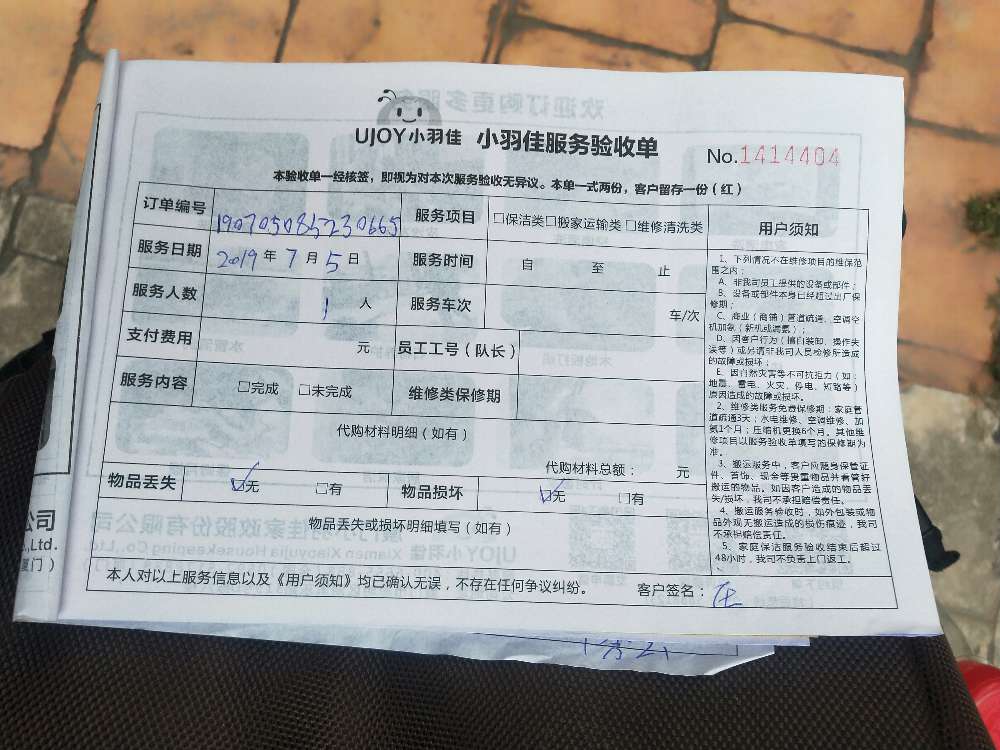 UJOY小羽佳 小羽佳服务验收单
No.1414404
本验收单一经核签，即视为对本次服务验收无异议。本单一式两份，客户留存一份（红）
订单编号 190705085230665 服务项目 □保洁类□搬家运输类 □维修清洗类
服务日期 2019 年 7 月 5 日 服务时间 自 至 止
服务人数 1 人 服务车次 车/次
支付费用 元 员工工号（队长）
服务内容 □完成 □未完成 维修类保修期
代购材料明细（如有）
代购材料总额： 元
物品丢失 ☑无 □有 物品损坏 ☑无 □有
物品丢失或损坏明细填写（如有）
本人对以上服务信息以及《用户须知》均已确认无误，不存在任何争议纠纷。 客户签名：
用户须知
1、下列情况不在维修项目的维保范
围之内：
A、非我司员工提供的设备或部件；
B、设备或部件本身已经超过出厂保
修期；
C、商业（商铺）管道疏通、空调空
机加氨（新机或漏氨）；
D、因客户行为（擅自装卸、操作失
误等）或另请非我司人员检修所造成
的故障或损坏。
E、因自然灾害等不可抗拒力（如：
地震、雷电、火灾、停电、短路等）
原因造成的故障或损坏。
2、维修类服务免费保修期：家庭管
道疏通3天；水电维修、空调维修、加
氨1个月；压缩机更换6个月。其他维
修项目以服务验收单填写的保修期为
准。
3、搬运服务中，客户应随身保管证
件、首饰、现金等贵重物品并看管好
搬运的物品。如因客户造成的物品丢
失/损坏，我司不承担赔偿责任。
4、搬运服务验收时，如外包装或物
品外观无搬运造成的损伤痕迹，我司
不承担赔偿责任。
5、家庭保洁服务验收结束后超过
48小时，我司不负责上门返工。
公司
.,Ltd.
厦门）